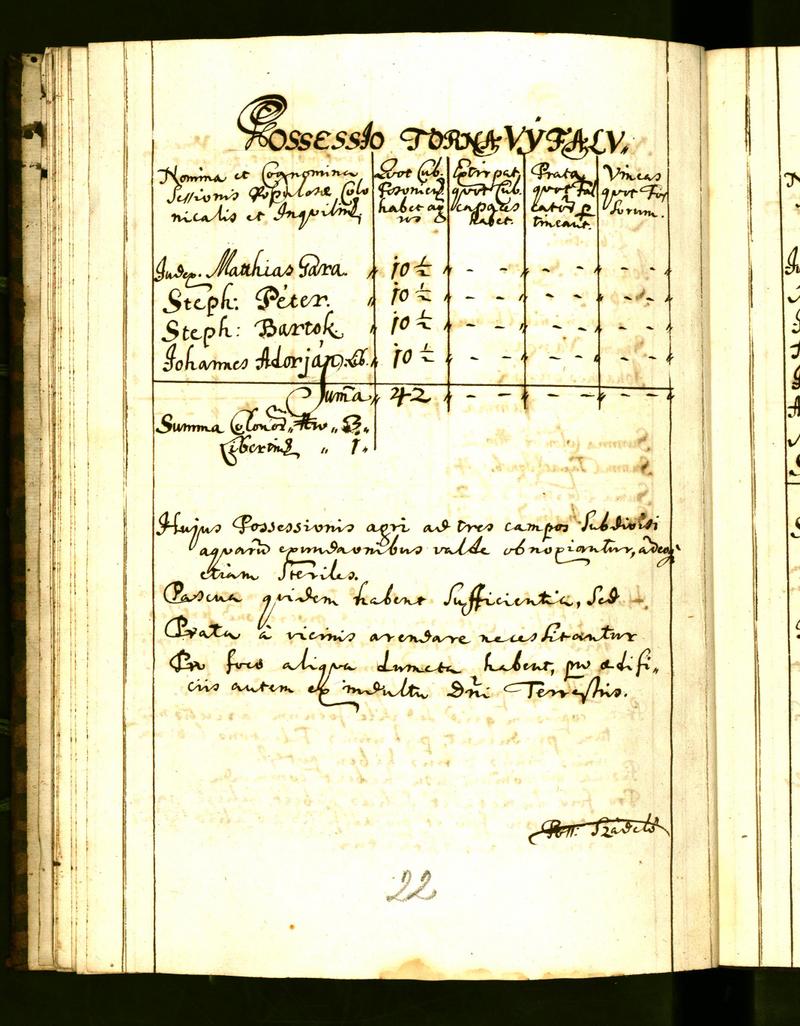 POSSESSIO TORNA VÝFALV.
Nomina et Cognomina
Sessionis Populosæ Colo
nicalis et Inquilinę
Quot Cub.
Posonien
habet ag
ros
Extirpat
quot Cub.
capaces
habet.
Prata
quot Fal
cator p
tineant.
Vineas
quot Fos
sorum.
Judex. Matthias Gara. " 10 ½ " - - " - - " - - "
Steph: Péter. " 10 ½ " - - " - - " - - "
Steph: Bartok. " 10 ½ " - - " - - " - - "
Johannes Adorján. Lib. " 10 ½ " - - " - - " - - "
Suma " 42 " - - " - - " - - "
Summa Colonor " 3 "
Libertin " 1 "
Hujus Possessionis agri ad tres campos Subdivisi
aquarū exundaonibus valde obnoxiantur, adeoq
etiam Steriles.
Pascua quidem habent Sufficientia, Sed
Prata à vicinis arendare necessitantur
Pro foco aliqua dumeta habent, pro ædifi„
ciis autem ex indultu Dñi Terrestris.
Poss: Szádelő
22